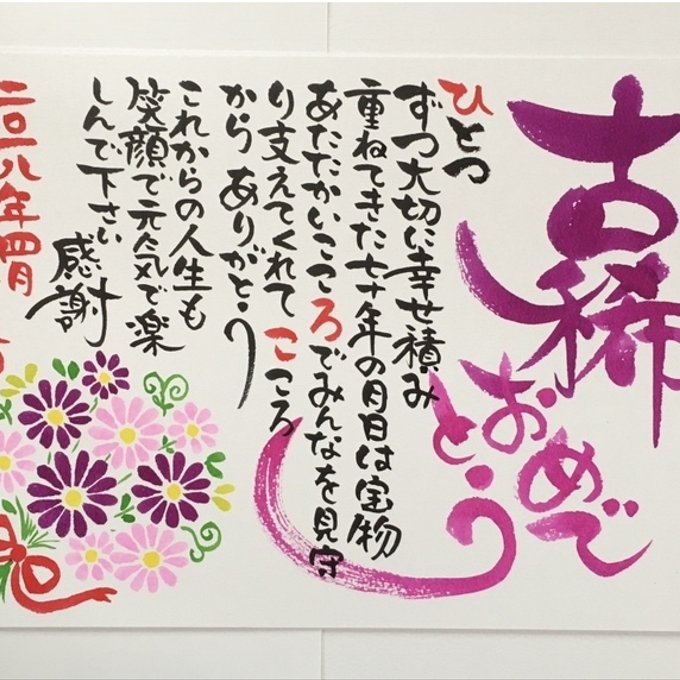 古稀
おめで
とう
ひとつ
ずつ大切に幸せ積み
重ねてきた七十年の月日は宝物
あたたかいこころでみんなを見守
り支えてくれて こころ
から ありがとう
これからの人生も
笑顔で元気で楽
しんで下さい
感謝
二〇一八年四月